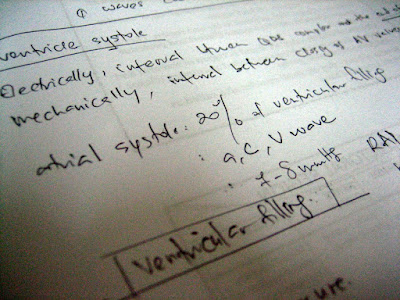 waves
ventricle systole
Electrically, interval between QRS complex and the end of
mechanically, interval between closing of AV valves
atrial systole: 20% of ventricular filling
: a, C, V wave
: 7-8 mmHg RAP
ventricular filling.
ure.